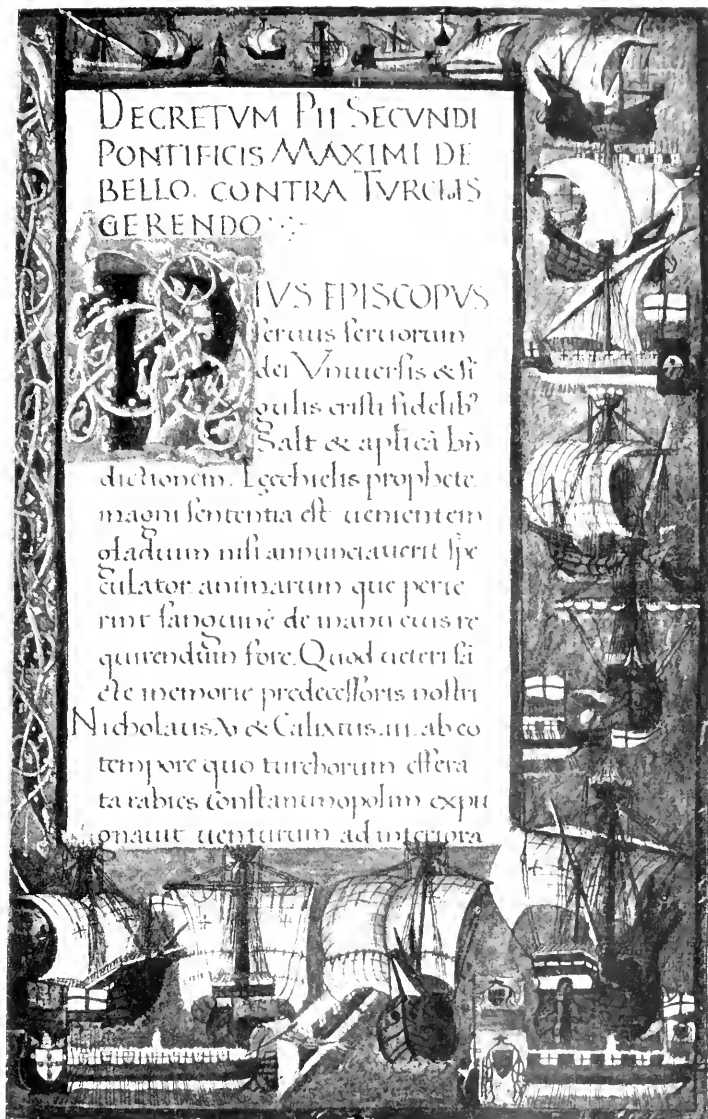 DECRETVM PII SECVNDI
PONTIFICIS MAXIMI DE
BELLO. CONTRA TVRCHIS
GERENDO
PIVS EPISCOPVS
seruus seruorum
dei Vniuersis & si
gulis cristi fidelib9
Salt & aplicā bn̄
dictionem. Iecehielis prophete
magni sententia est uenientem
gladium nisi annunciauerit spe
culator animarum que perie
rint sanguinē de manu eius re
quirendum fore. Quod ueteri sā
cte memorie predecessoris nostri
Nicholaus.V. & Calixtus.iii. ab eo
tempore quo turchorum effera
ta rabies constantinopolim expu
gnauit uenturum ad interiora